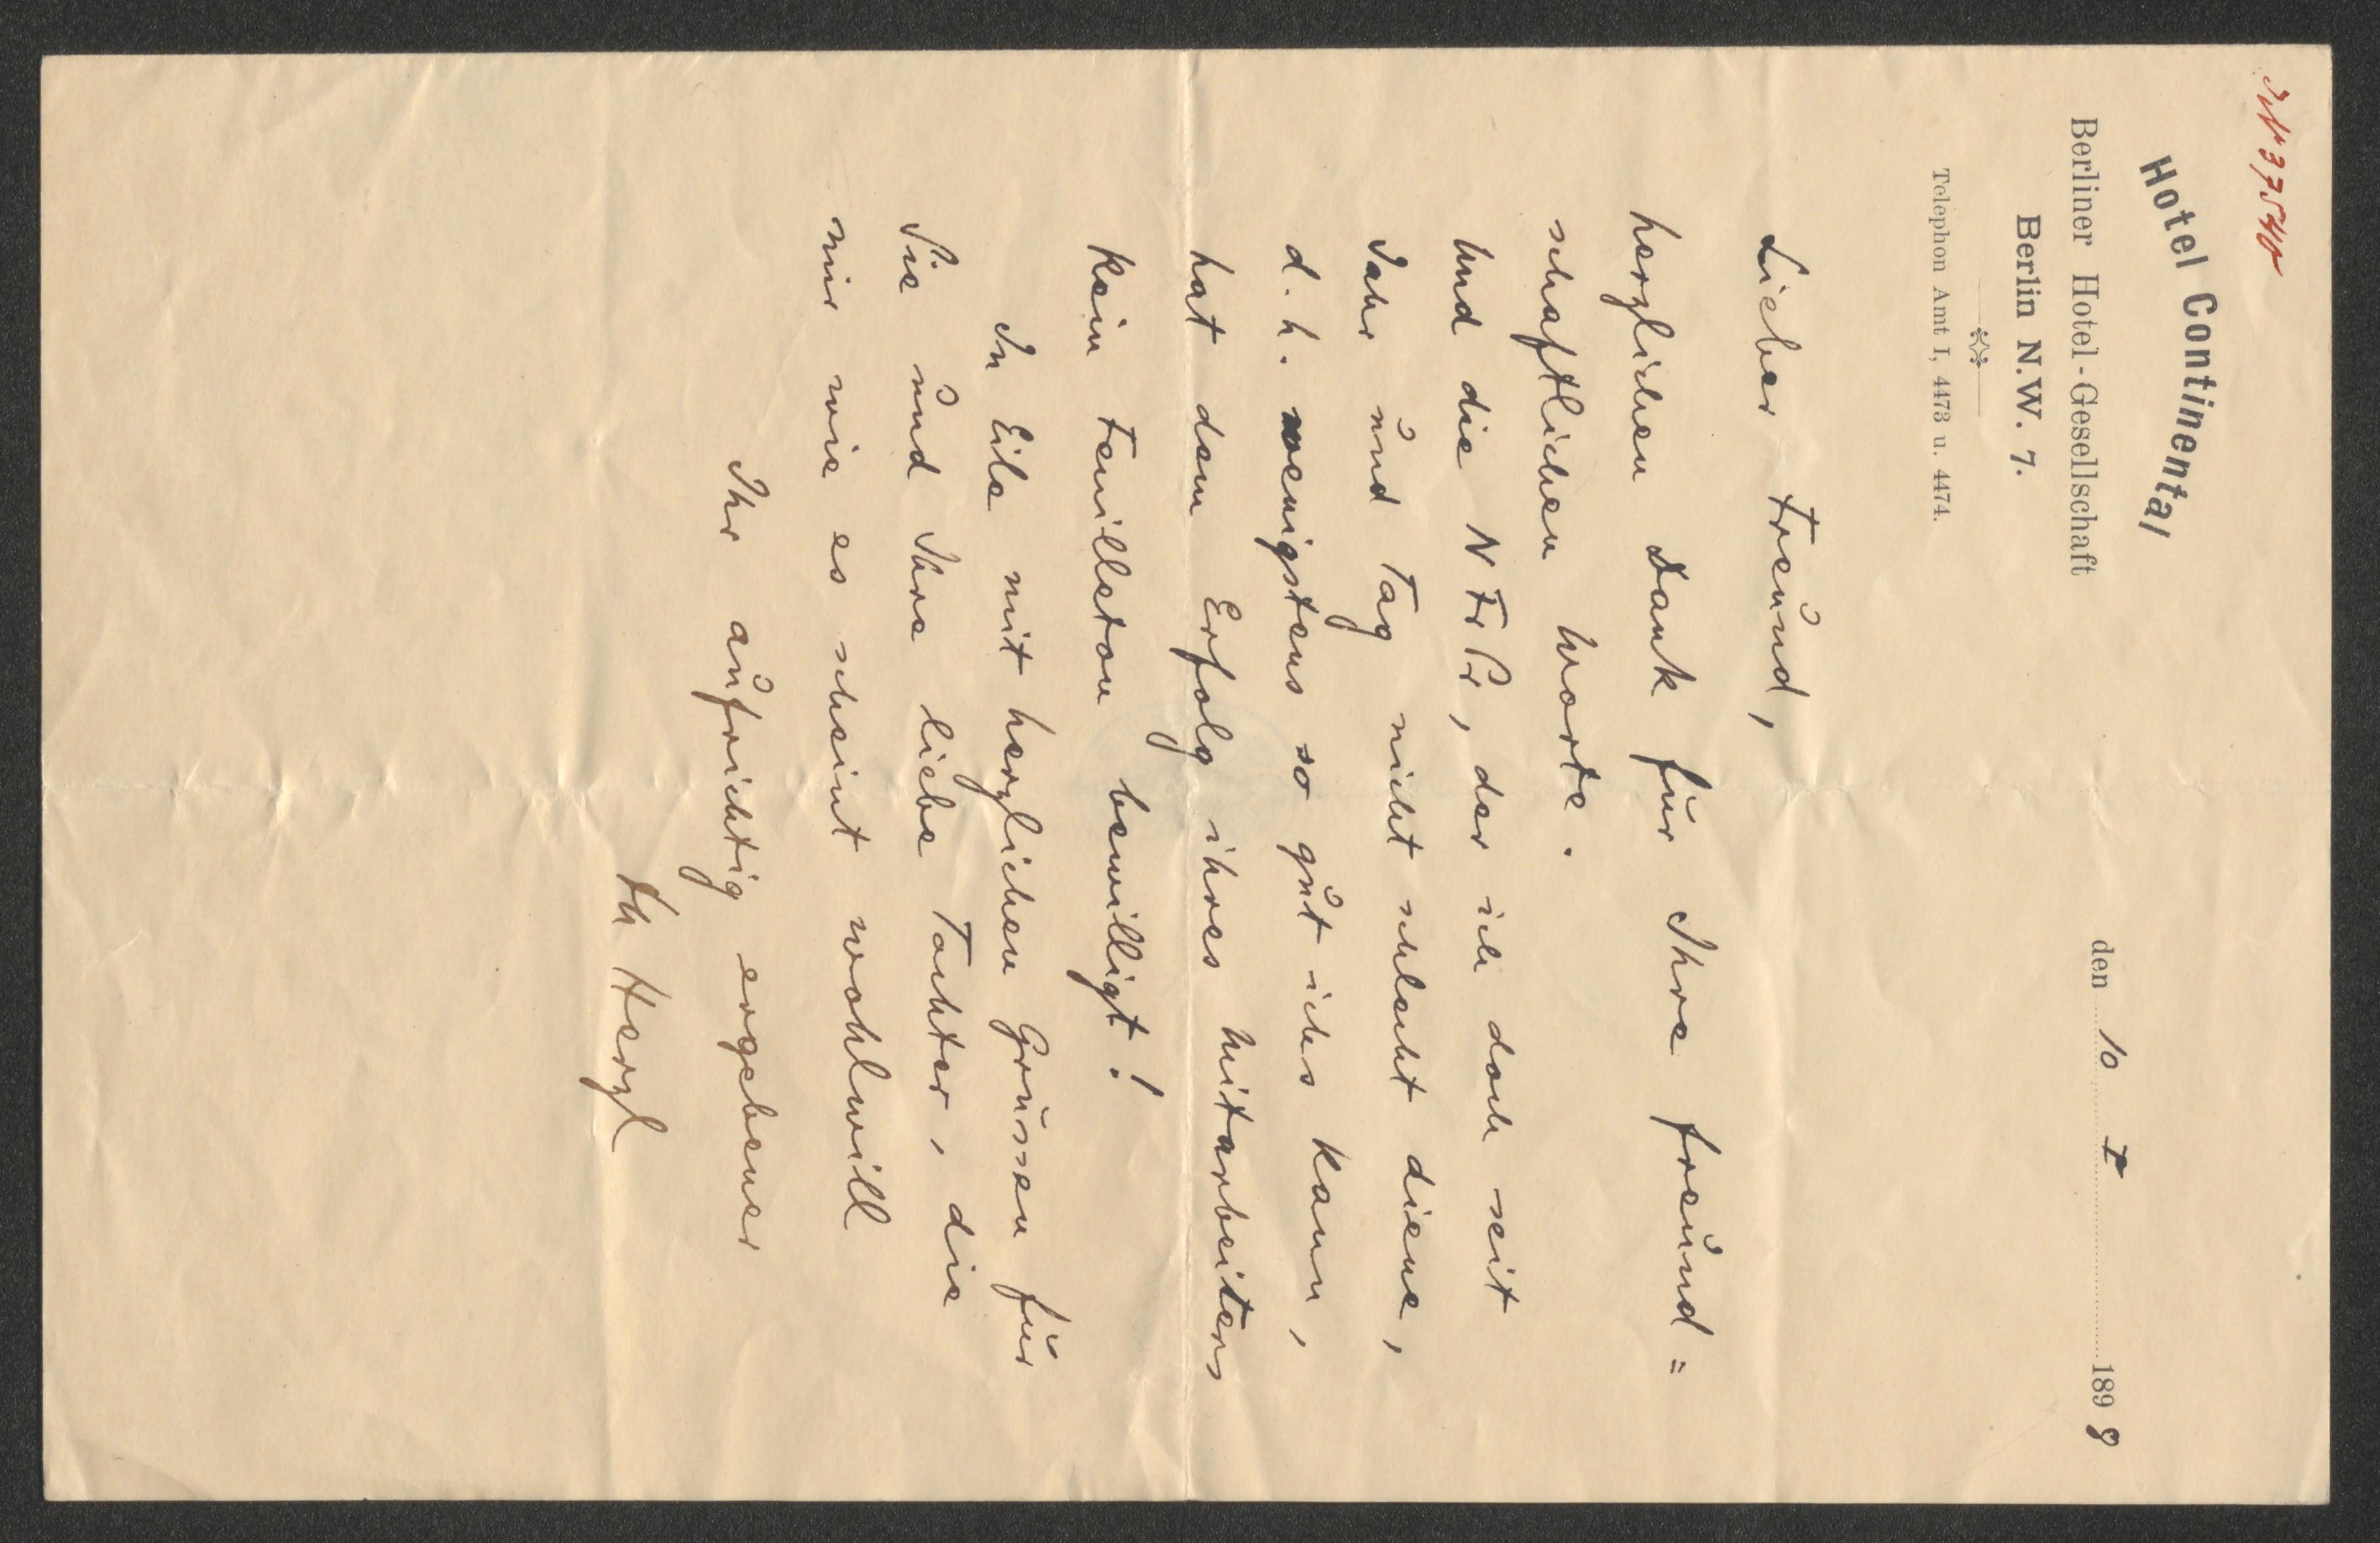 IN 37540
Hotel Continental
Berliner Hotel-Gesellschaft
Berlin N.W. 7.
Telephon Amt I, 4473 u. 4474.
den 10 X 1898
Lieber Freund,
herzlichen Dank für Ihre freund=
schaftlichen Worte.
Und die N Fr Pr, der ich doch seit
Jahr und Tag nicht schlecht diene,
d. h. wenigstens so gut ichs kann,
hat dem Erfolg ihres Mitarbeiters
kein Feuilleton bewilligt!
In Eile mit herzlichen Grüssen für
Sie und Ihre liebe Tochter, die
mir wie es scheint wohlwill
Ihr aufrichtig ergebener
Th Herzl